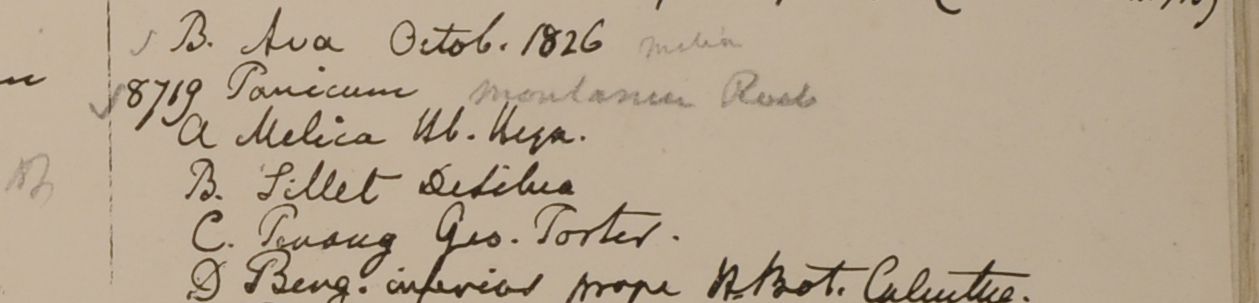 B. Ava Octob. 1826
8719 Panicum montanum Roxb
a Melica Hb. Heyn.
B. Sillet Desilva
C. Penang Geo. Porter.
D Beng. inferior prope H. Bot. Calcuttae.